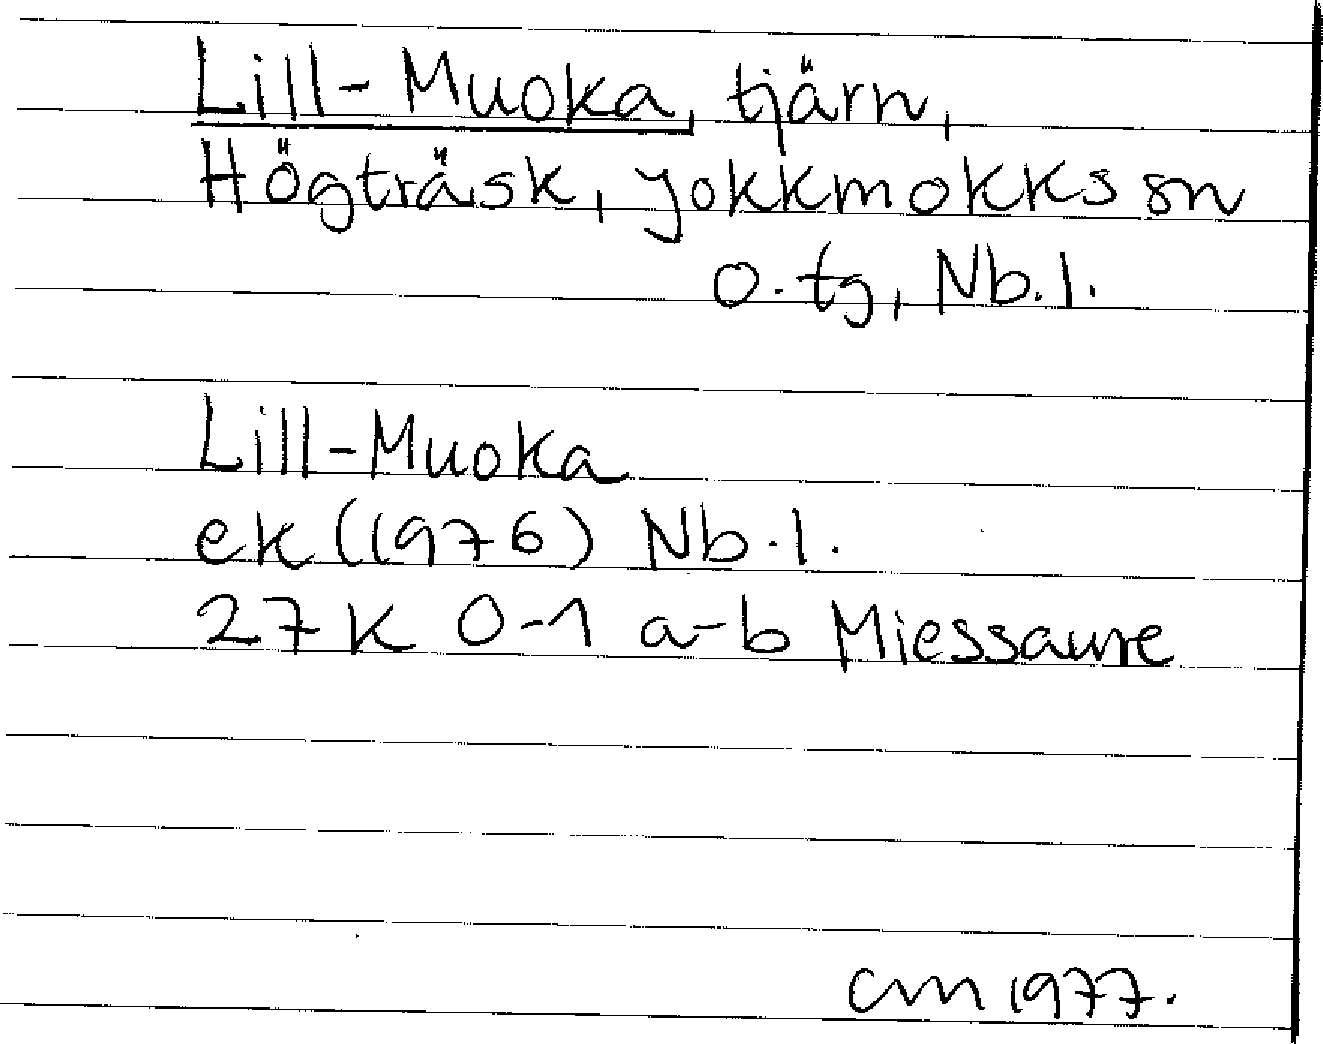 Lill-Muoka, tjärn,
Högträsk, Jokkmokks sn
o. tg, Nb.l.
Lill-Muoka
ek (1976) Nb.l.
27K 0-1 a-b Miessaure
CM 1977.